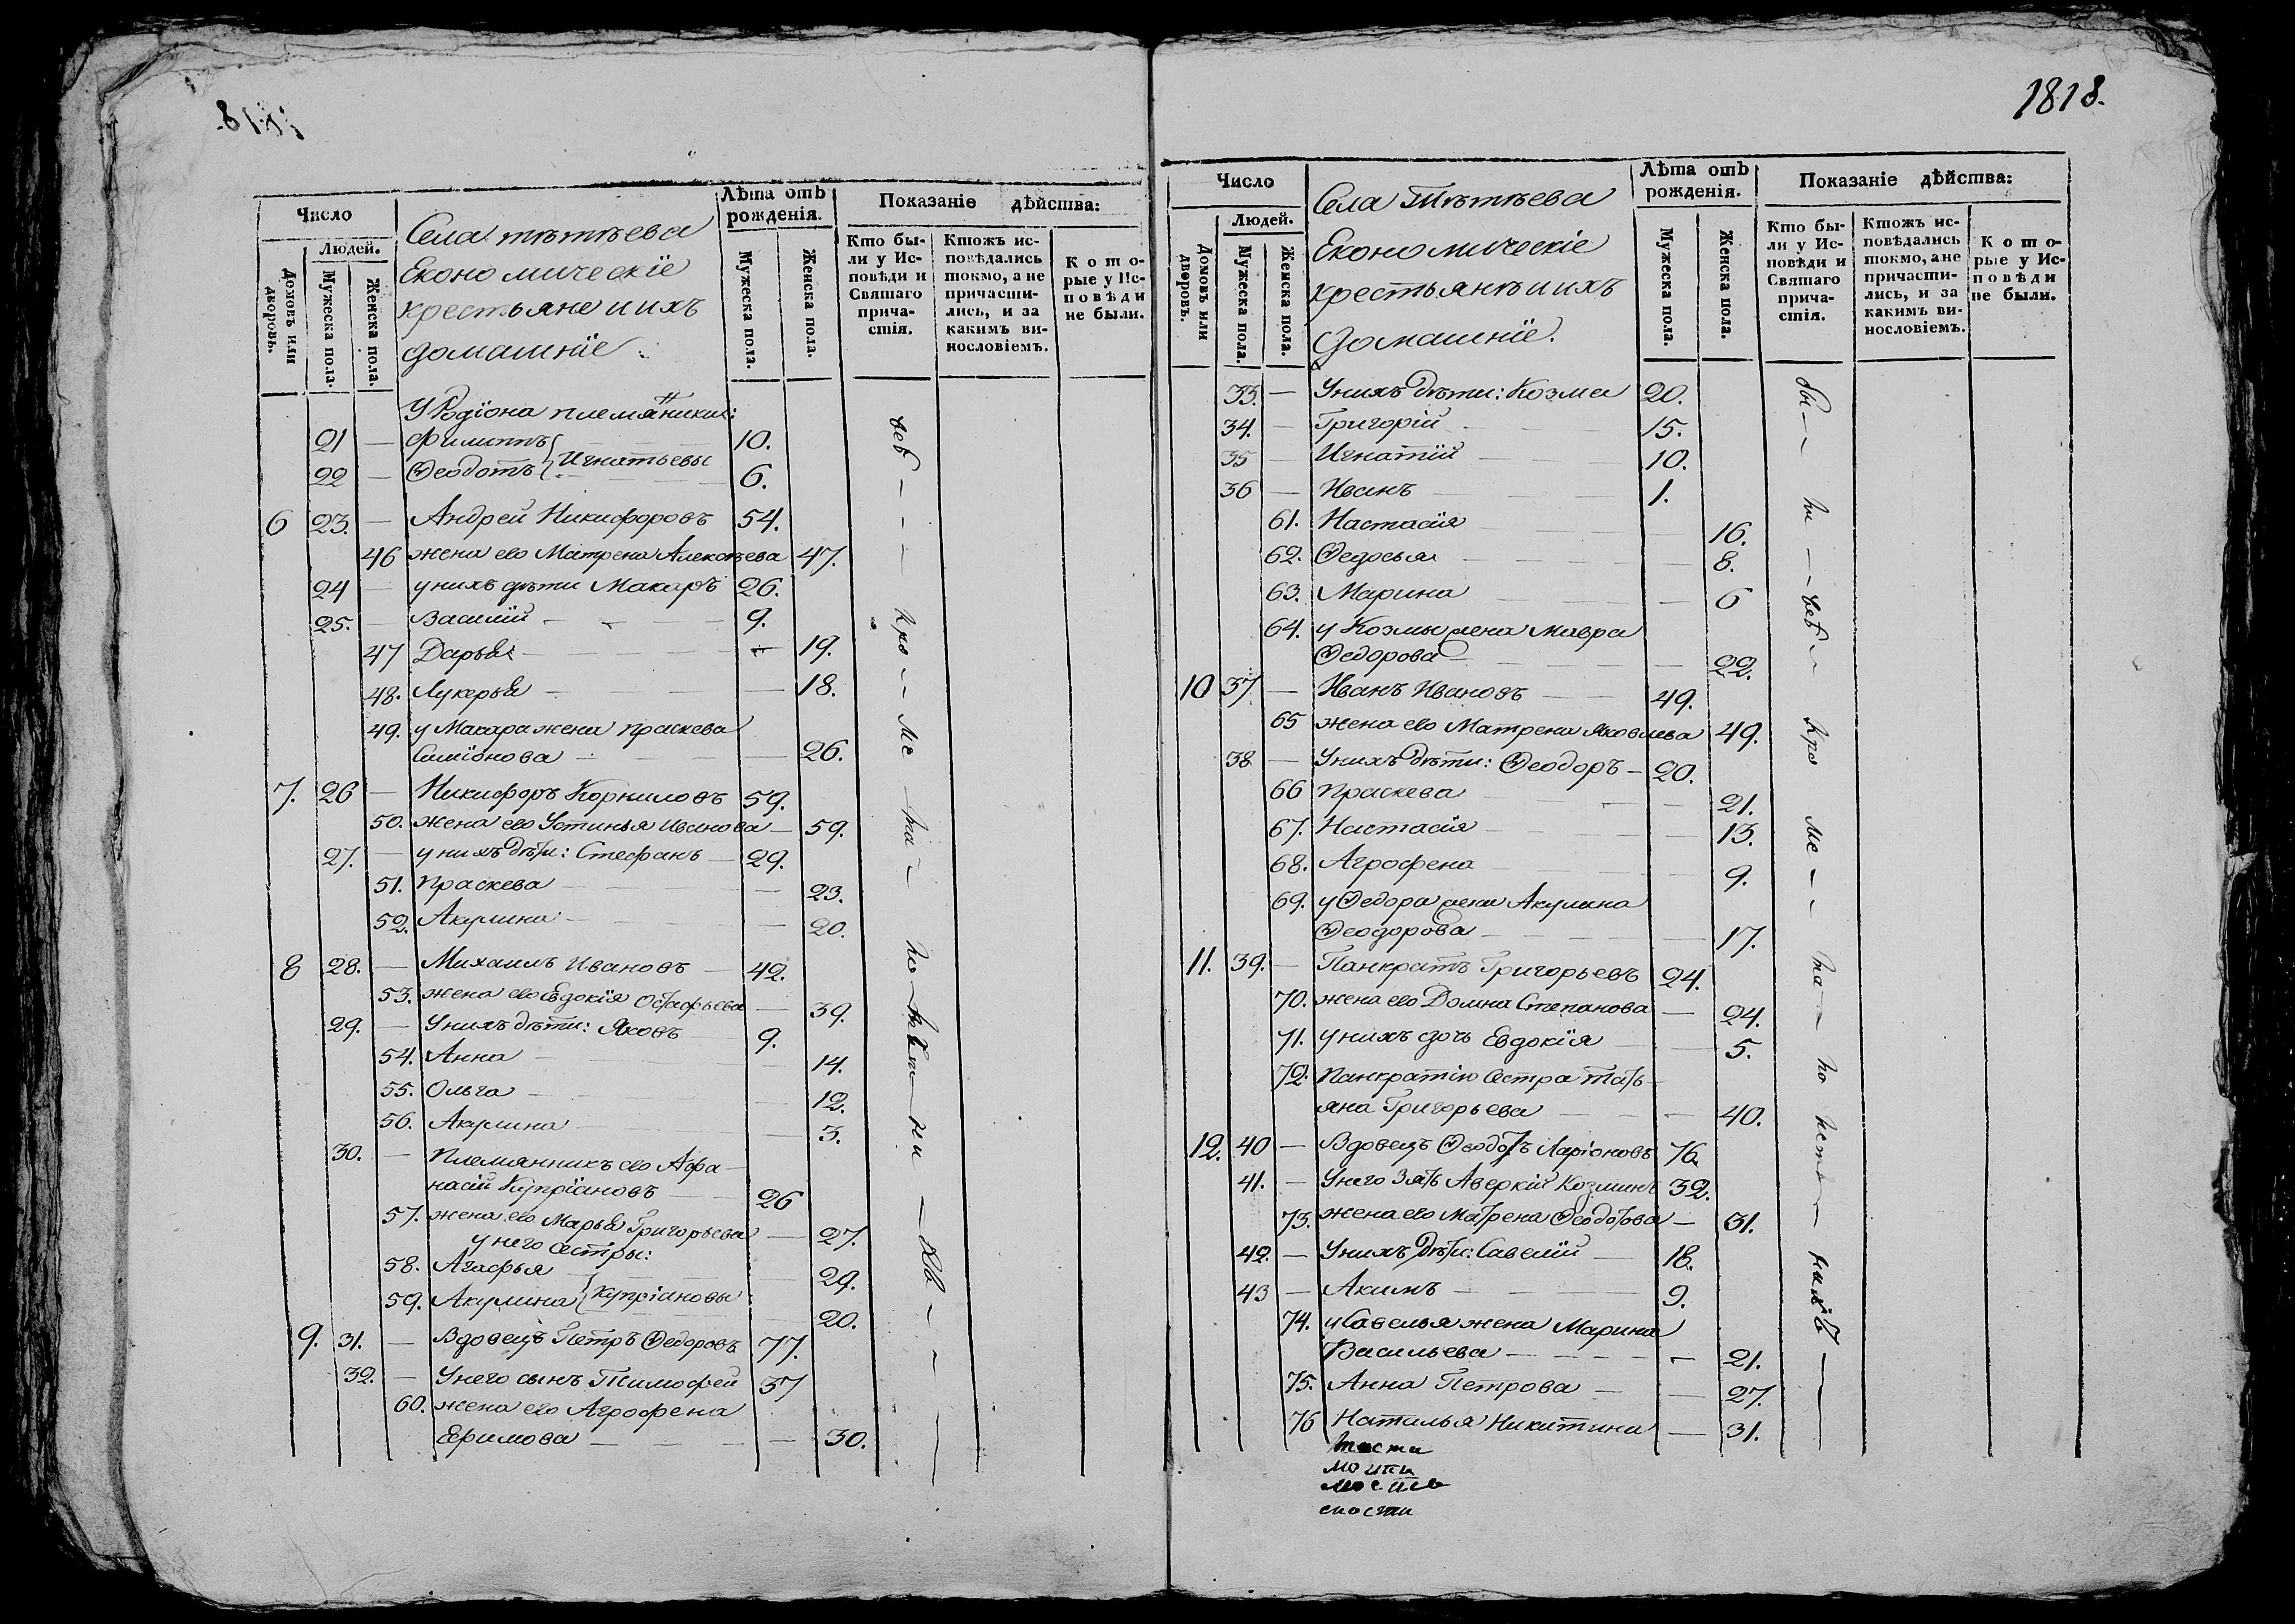 1818.
Число
Людей.
Домовъ или дворовъ.
Мужеска пола.
Женска пола.
Села тѣтѣева
Економическіе
крестьяне и ихъ
домашніе
Лѣта отъ рожденія.
Мужеска пола.
Женска пола.
Показаніе дѣйства:
Кто бы-
ли у Ис-
повѣди и
Святаго
прича-
стія.
Ктожъ ис-
повѣдались
токмо, а не
причасти-
лись, и за
какимъ ви-
нословіемъ.
К о т о-
рые у Ис-
п о в ѣ д и
не были.
У Родіона племянники:
21 — Филиппъ 10.
22 — Ѳеодотъ } Игнатьевы 6.
6 23. — Андрей Никифоровъ 54.
46 жена его Матрена Алексѣева 47.
24 — у нихъ дѣти Макаръ 26.
25. — Василій — 9.
47 Дарья — 19.
48. Лукерья — 18.
49. у Макара жена праскева
Симіонова — 26.
7. 26 — Никифоръ Корниловъ 59.
50. жена его Устинья Иванова — 59.
27. — у нихъ дѣти: Стефанъ — 29.
51. праскева — 23.
52. Акулина — 20.
8 28. — Михаилъ Ивановъ — 42.
53. жена его Евдокія Остафьева — 39.
29. — У нихъ дѣти: Яковъ 9.
54. Анна — 14.
55. Ольга — 12.
56. Акулина — 3.
30. — Племянникъ его Афа-
насій Купріановъ — 26
57. жена его Марья Григорьева — 27.
у него сестры:
58. Агафья 29.
59. Акулина } Купріановы 20.
9. 31. — Вдовецъ Петръ Ѳедоровъ 77.
32. — У него сынъ Тимофей 37
60. жена его Агрофена
Ефимова — 30.
1818.
Число
Людей.
Домовъ или дворовъ.
Мужеска пола.
Женска пола.
Села Тѣтѣева
Економическіе
крестьянѣ и ихъ
домашніе.
Лѣта отъ рожденія.
Мужеска пола.
Женска пола.
Показаніе дѣйства:
Кто бы-
ли у Ис-
повѣди и
Святаго
прича-
стія.
Ктожъ ис-
повѣдались
токмо, а не
причасти-
лись, и за
какимъ ви-
нословіемъ.
К о т о-
рые у Ис-
п о в ѣ д и
не были.
33. — У нихъ дѣти: Козма 20.
34. — Григорій 15.
35 — Игнатій — 10.
36 — Иванъ — 1.
61. Настасія — 16.
62. Ѳедосья — 8.
63. Марина — 6
64. у Козмы жена Мавра
Ѳедорова — 22.
10 37 — Иванъ Ивановъ — 49.
65 жена его Матрена Яковлева 49.
38 — У нихъ дѣти: Ѳеодоръ — 20.
66 праскева — 21.
67. Настасія — 13.
68. Агрофена — 9.
69. у Ѳедора жена Акулина
Ѳеодорова — 17.
11. 39. — Панкратъ Григорьевъ 24.
70. жена его Домна Степанова — 24.
71. у нихъ дочь Евдокія — 5.
72. Панкратію сестра Тать-
яна Григорьева — 40.
12. 40 — Вдовецъ Ѳеодотъ Ларіоновъ 76.
41. — У него зять Аверкій Козминъ 32.
73. жена его Матрена Ѳеодотова — 31.
42. — У нихъ дѣти: Савелій — 18.
43 — Акимъ — 9.
74. у Савелья жена Марина
Васильева — 21.
75. Анна Петрова — 27.
76 Наталья Никитина — 31.